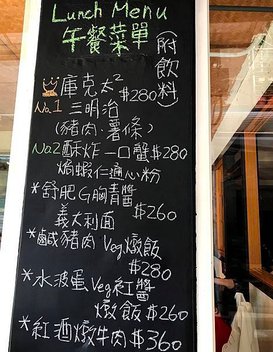 Lunch Menu
午餐菜單
(附飲料)
庫克太² $280
No.1 三明治
(豬肉·薯條)
No.2 酥炸一口蟹 $280
焗蝦仁通心粉
*舒肥G胸青醬
義大利面 $260
*鹹豬肉 Veg.燉飯
$280
*水波蛋Veg紅醬
燉飯 $260
*紅酒燉牛肉 $360